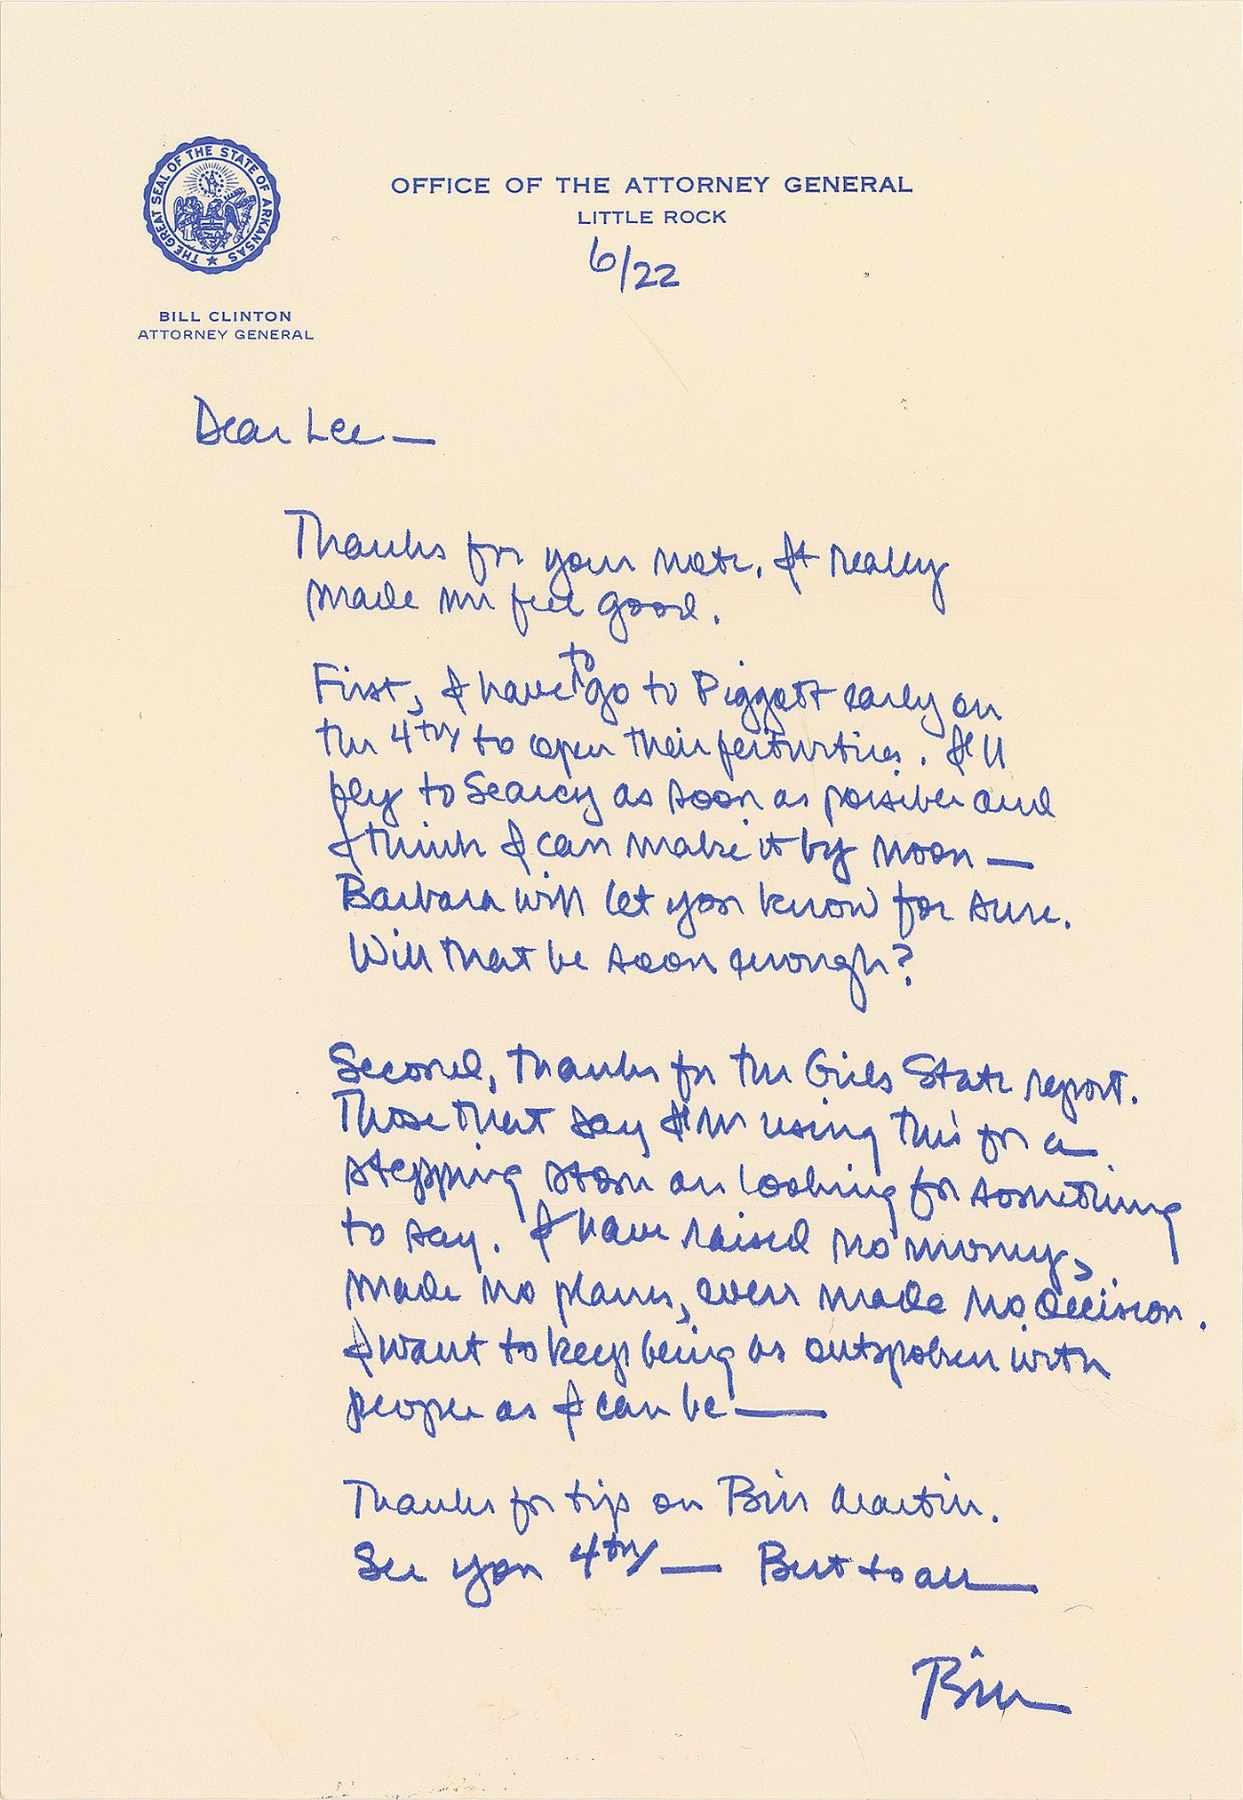 THE GREAT SEAL OF THE STATE OF ARKANSAS
OFFICE OF THE ATTORNEY GENERAL
LITTLE ROCK
6/22
BILL CLINTON
ATTORNEY GENERAL
Dear Lee —
Thanks for your note. It really
made me feel good.
First, I have to go to Piggott early on
the 4th to open their festivities. I'll
fly to Searcy as soon as possible and
I think I can make it by noon —
Barbara will let you know for sure.
Will that be soon enough?
Second, thanks for the Girls State report.
Those that say I'm using this for a
stepping stone are looking for something
to say. I have raised no money,
made no plans, even made no decision.
I want to keep being as outspoken with
people as I can be —
Thanks for tip on Bill Martin.
See you 4th — Best to all —
Bill